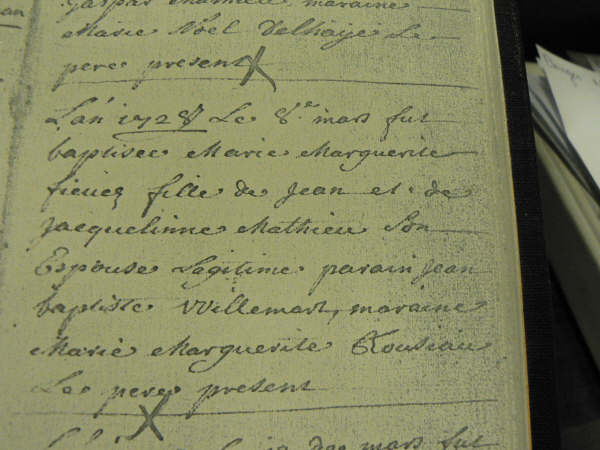 gaspar maraine
Marie Noel Delhaije Le
pere present
L'an 1728 Le 8e mars fut
baptisee Marie Marguerite
fievez fille de Jean et de
Jacquelinne Mathieu Son
Espouse Legitime parain Jean
baptiste Willemart, maraine
Marie Marguerite Rousiau
Le pere present
mars fut